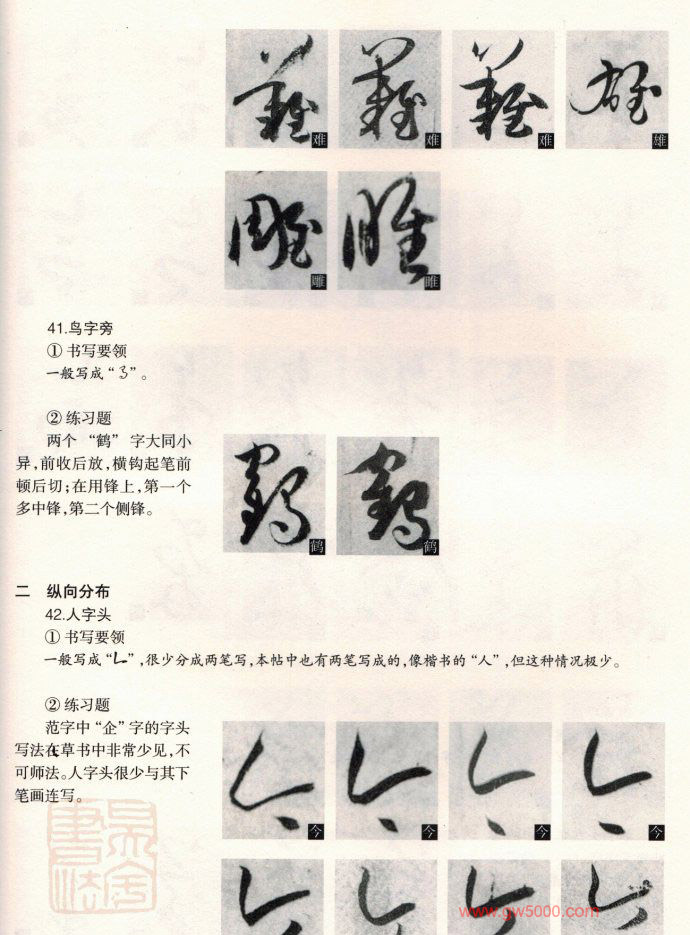 难 难 难 雄
雕 雎
41.鸟字旁
① 书写要领
一般写成“ ”。
② 练习题
两个 “鹤” 字大同小
异,前收后放,横钩起笔前
顿后切;在用锋上,第一个
多中锋,第二个侧锋。
鹤 鹤
二 纵向分布
42.人字头
① 书写要领
一般写成“ ”,很少分成两笔写,本帖中也有两笔写成的,像楷书的“人”,但这种情况极少。
② 练习题
范字中“企”字的字头
写法在草书中非常少见,不
可师法。人字头很少与其下
笔画连写。
今 今 今 今
www.gw5000.com